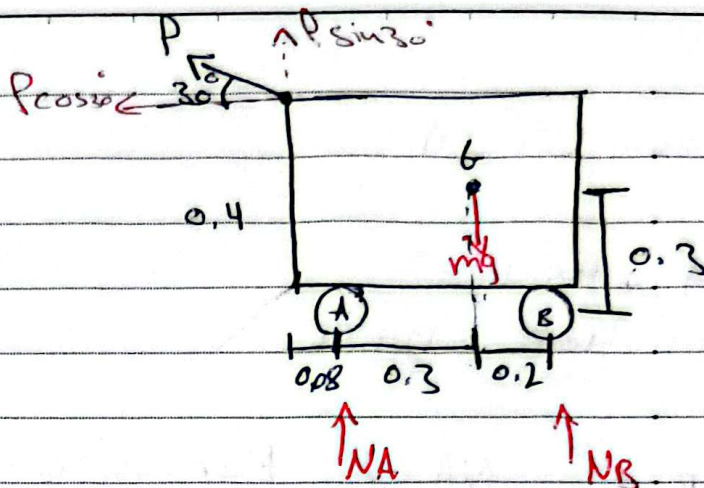 P
P sin30°
Pcos30
30°
G
0.4
mg
0.3
A
B
0.08
0.3
0.2
NA
NB